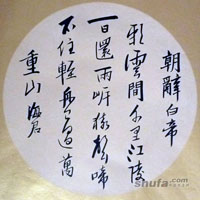 朝辭白帝
彩雲間千里江陵
一日還兩岸猿聲啼
不住輕舟已過萬
重山
shufa.com